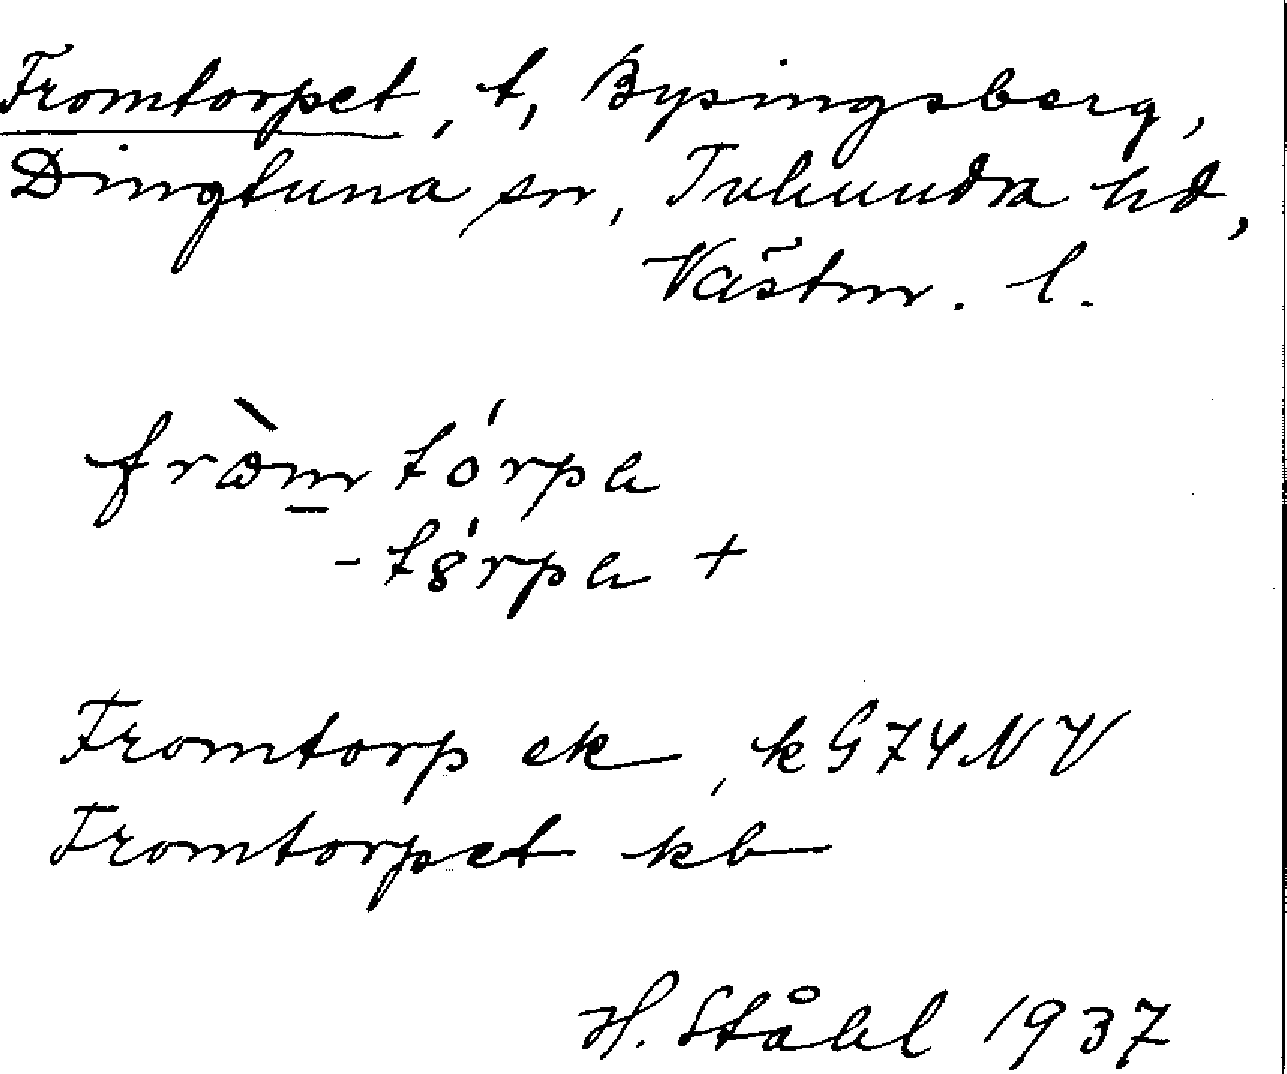 Fromtorpet, t, Bysingsberg,
Dingtuna sn, Tuhundra hd,
Västm. l.
fròm tórpa
-tórpa +
Fromtorp ek, kG74NV
Fromtorpet kb
H. Ståhl 1937